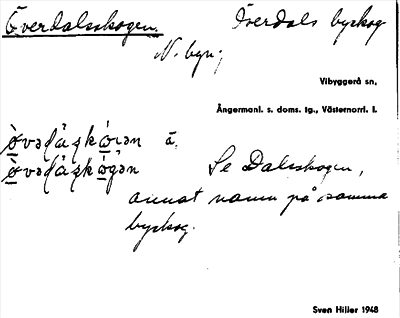 Överdalsskogen. Överdals byskog
N. byn;
Vibyggerå sn,
Ångermanl. s. doms. tg., Västernorrl. l.
Se Dalsskogen,
annat namn på samma
byskog.
Sven Hiller 1948